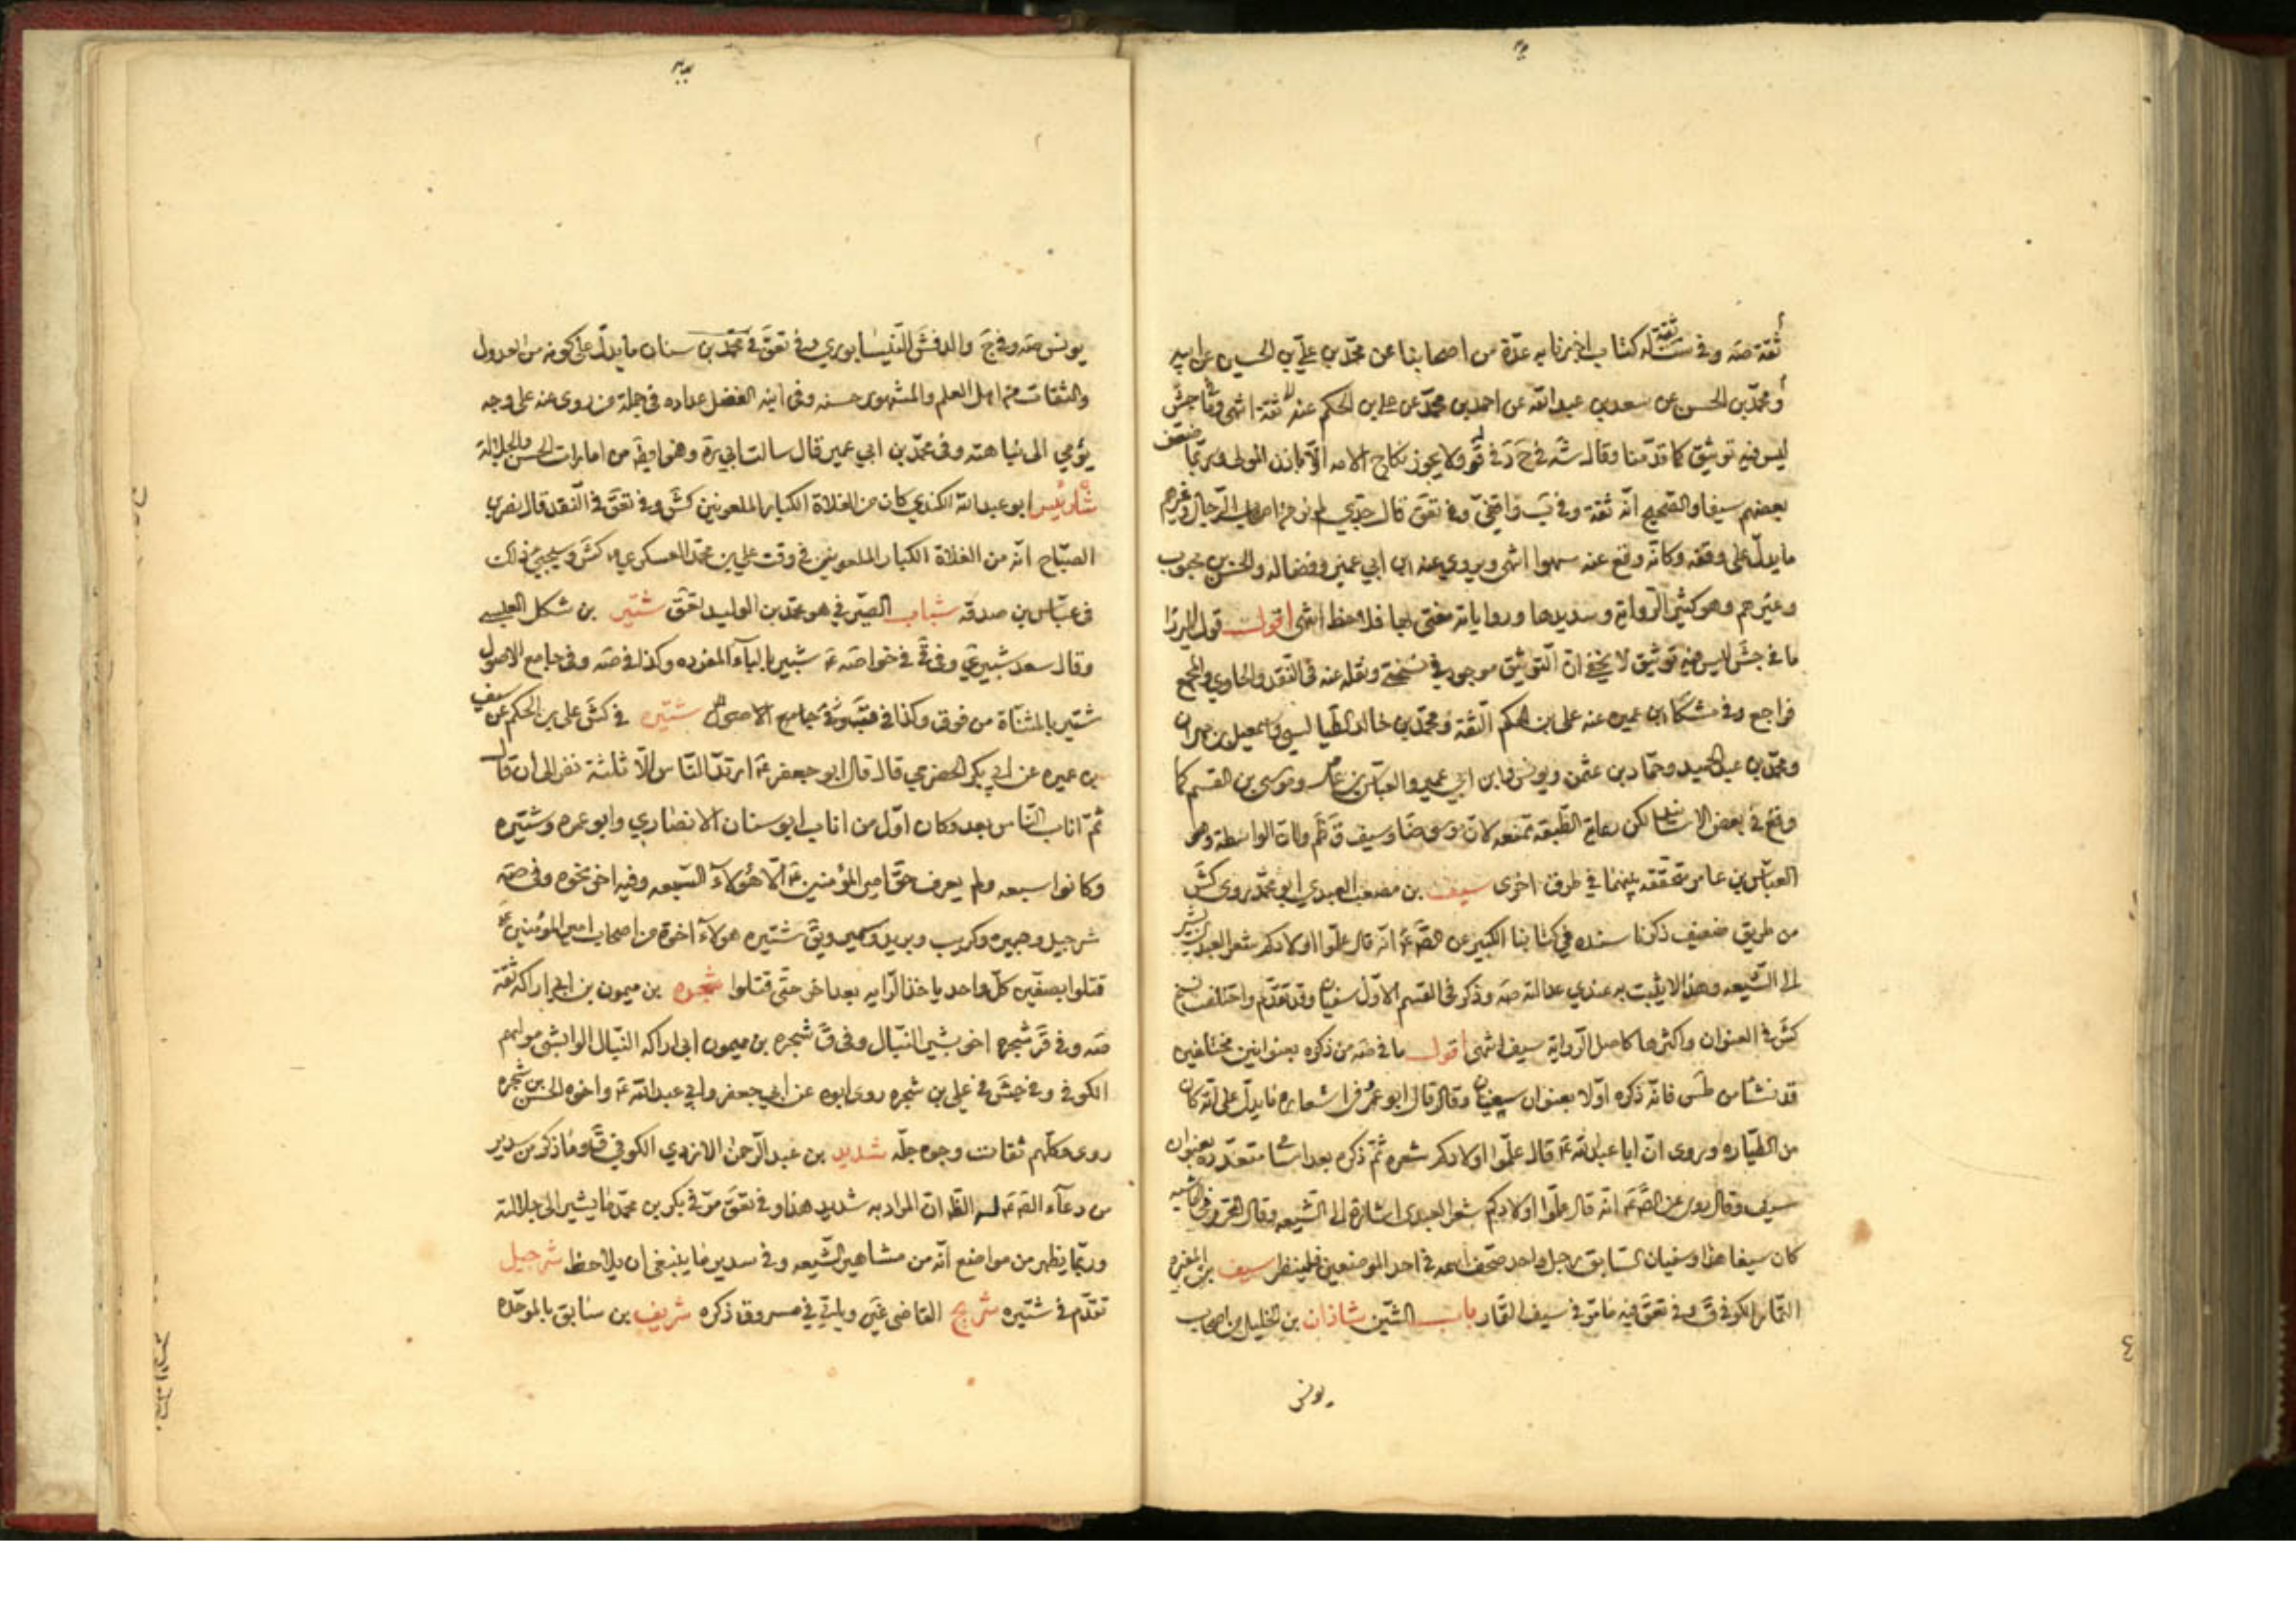 ثقة صه وفي ست ثقة له كتاب اخبرنا به عدّة من اصحابنا عن محمّد بن عليّ بن الحسين عن ابيه
ومحمّد بن الحسن عن سعد بن عبد الله عن احمد بن محمّد عن علي بن الحكم عنه ثقة انتهى وفي جش
ليس فيه توثيق كما قدّمنا وقال شه في ولا يجوز نكاح الامه الّا باذن المولى وربّما ضعّف
بعضهم سيفا والصّحيح انّه ثقة وفي ب واقفيّ وفي تعق قال جدّي لم نر من اصحاب الرّجال وغيرهم
ما يدلّ على وقفه وكانّه وقع عنه سهوا انتهى ويروي عنه ابن ابي عمير وفضاله والحسن بن محبوب
وغيرهم وهو كثير الرّواية وسديدها ورواياته مفتى بها فلاحظ انتهى اقول قول الميرزا
ما في جش ليس فيه توثيق لا يخفى انّ التّوثيق موجود في نسختي ونقله عنه في النّقد والحاوي والمجمع
فراجع وفي مشكا ابن عميره عنه علي بن الحكم الثّقة ومحمّد بن خالد الطّيالسي واسمعيل بن مهران
ومحمّد بن عبد الحميد وحمّاد بن عثمن ويونس وابن ابي عمير والعبّاس بن عامر وموسى بن القسم كما
وقع في بعض الاسانيد لكن رعاية الطّبقه تمنعه لانّ موسى ضا وسيف ق ظم وانّ الواسطة وهو
العبّاس بن عامر متحققه بينهما في طرق اخرى سيف بن مصعب العبدي ابو محمّد روى كش
من طريق ضعيف ذكرنا سنده في كتابنا الكبير عن الصّ ع انّه قال علّموا اولادكم شعر العبدي يشير
الى الشّيعه وهذا لا يثبت به عندي عدالته صه وذكر في القسم الاوّل سفيان وقد تقدّم واختلف نسخ
كش في العنوان واكثرها كاصل الرّواية سيف انتهى اقول ما في صه من ذكره بعنوانين مختلفين
قد نشا من طس فانّه ذكره اوّلا بعنوان سفيان وقال قال ابو عمرو في اشعاره ما يدلّ على انّه كان
من الطّياره وروى انّ ابا عبد الله ع قال علّموا اولادكم شعره ثمّ ذكره بعد اسامي متعدّده بعنوان
سيف وقال روى عن الصّ ع انّه قال علّموا اولادكم شعر العبدى اشارة الى الشّيعه وقال المحرّر في الحاشيه
كان سيفا هذا وسفيان السّابق رجل واحد صحّف اسمه في احد الموضعين فلينظر سيف بن المغيره
التّمار الكوفي ق وفي تعق فيه ما مرّ في سيف التّمار باب الشّين شاذان بن الخليل من اصحاب
يونس
يونس صه وفي ج والد فش النّيسابوري وفي تعق في محمّد بن سنان ما يدلّ على كونه من العدول
والثقات من اهل العلم والمشهور حسنه وفى ابنه الفضل عداده في جملة من روى عنه على وجه
يؤمي الى نباهته وفي محمّد بن ابي عمير قال سالت ابي مرة وهو ايضا من امارات الحسن والجلالة
شاه رئيس ابو عبد الله الكندي كان من الغلاة الكبار الملعونين كش وفي تعق في النّقد قال نصر بن
الصبّاح انّه من الغلاة الكبار الملعونين في وقت علي بن محمّد العسكري ع كش وسيجيئ ذلك
في عبّاس بن صدقه شباب الصيرفي هو محمّد بن الوليد تعق شتير بن شكل العبسي
وقال سعد شبير ي وفي قي في خواصه ع شبير بالباء المفرده وكذا في صه وفي جامع الاصول
شتير بالمثنّاة من فوق وكذا في قب وفي جامع الاصول شتيره في كش علي بن الحكم عن سيف
بن عميره عن ابي بكر الحضرمي قال قال ابو جعفر ع ارتدّ النّاس الّا ثلثة نفر الى ان قال
ثمّ اناب النّاس بعد وكان اوّل من اناب ابو سنان الانصاري وابو عمره وشتيره
وكانوا سبعه ولم يعرف حقّ امير المؤمنين ع الّا هؤلاء السّبعه وفيه اخر نحوه وفي صه
شرحبيل وهبيره وكريب وبريد وسمير ويق شتيره هولاء اخوة من اصحاب امير المؤمنين ع
قتلوا بصفّين كلّ واحد ياخذ الرّايه بعد اخر حتّى قتلوا شجره بن ميمون بن ابي اراكه ثقة
صه وفي قر شجره اخو بشير النّبال وفي ق شجره بن ميمون ابي اراكه النّبال الوابشي مولاهم
الكوفي وفي جش في علي بن شجره روى ابوه عن ابي جعفر وابي عبد الله ع واخوه الحسن بن شجره
روى وكلّهم ثقات وجوه جلّه شديد بن عبد الرّحمن الازدي الكوفي ق وما ذكر من سدير
من دعاء الصّ ع له الظّ انّ المراد به شديد هذا وفي تعق مرّ في بكر بن محمّد ما يشير الى جلالته
وربّما يظهر من مواضع انّه من مشاهير الشّيعه وفي سدير ما ينبغي ان يلاحظ شرحبيل
تقدّم في شتيره شريح القاضي غير وياتي في مسروق ذكره شريف بن سابق بالموحّده